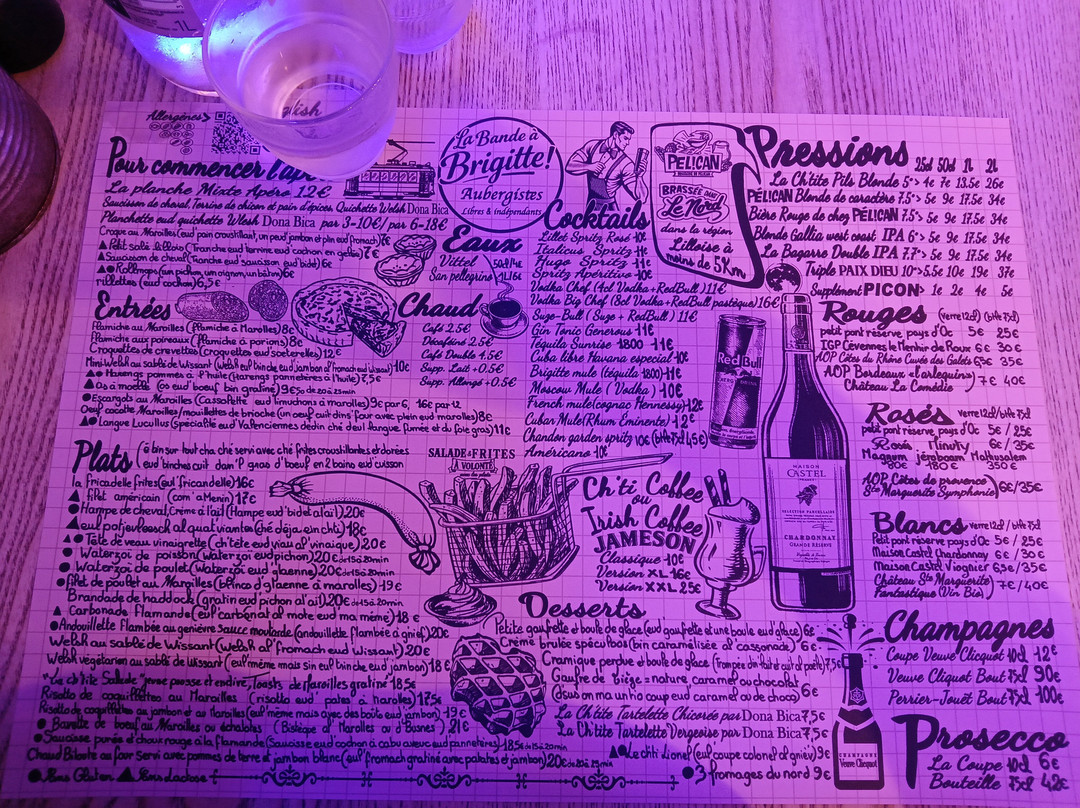 Allergènes>
Pour commencer l'apé
La planche Mixte Apéro 12€
Saucisson de cheval, Terrine de chicon et pain d'épices, Quichette Welsh Dona Bica
Planchette eud quichette Wlesh Dona Bica par 3-10€/par 6-18€
Craque au Maroilles
▲Petit salé
▲Saucisson de cheval (Tranche eud saucisson eud bidet) 6€
▲●Rollmops (un pichon, um oignon, un bâton) 6€
rillettes (eud cochon) 6,5€
La Bande à
Brigitte!
Aubergistes
Libres & indépendants
Eaux
Vittel 50/1/4€
San pellegrino 1L/6€
Chaud
Café 2.5€
Décaféiné 2.5€
Café Double 4.5€
Supp. Lait +0.5€
Supp. Allongé +0.5€
Entrées
flamiche au Maroilles (flamiche à Marolles) 8€
flamiche aux poireaux (flamiche à porions) 8€
Croquettes de crevettes (croquettes eud sceterelles) 12€
Mini Welsh au sablé de wissant (welsh euf binche eud jambon af fromach eud vaux) 10€
▲●Harengs pommes à l'huile (Harengs panneterres à l'huile) 7,5€
▲Os à moelle (os eud boeuf bin gratiné) 9€50 de 20 à 25min
●Escargots au Maroilles (Cassolette eud limuchons à marolles) 9€ par 6, 16€ par 12
Oeuf cocotte, Maroilles/mouillettes de brioche (un oeuf cuit dins' four avec plein eud marolles) 8€
▲●Langue Lucullus (spécialité eud Valenciennes dedin ché deul langue fumée et du foie gras) 11€
Plats
é bin sur tout cha, ché servi avec ché frites croustillantes et dorées
eud binches cuit dam' P'grao d'boeuf en 2 bains eud cuisson
SALADE & FRITES
À VOLONTÉ
la fricadelle frites (eul fricandelle) 16€
▲ filet américain (com' a Menin) 17€
●Hampe de cheval, Crème à l'ail (Hampe eud bidet al'ail) 20€
▲eul potjevleesch al quat viantes (ché déja ein chti) 18€
▲●Tête de veau vinaigrette (ch'tête eud viau al'vinaique) 20€
●Waterzoï de poisson (waterzoï eud pichon) 20€ de 15 à 20min
●Waterzoï de poulet (waterzoï eud glaenne) 20€ de 15 à 20min
●filet de poulet au Maroilles (blinco d'glaenne à marolles) 19€
Brandade de haddock (gratin eud pichon al'ail) 20€ de 15 à 20min
▲ Carbonade flamande (eul' carbonat al mote eud ma mémé) 18€
●Andouillette Flambée au genièvre sauce moutarde (andouillette flambée à gnief) 20€
Welsh au sablé de Wissant (Welsh al'fromach eud Wissant) 20€
Welsh végétarien au sablé de Wissant (eul'même mais sin euf binche eud jambon) 18€
La chtite Salade "jeune pousse et endive", Toasts de Maroilles gratiné 18,5€
Risotto de coquillettes au Maroilles (risotto eud pates à marolles) 17,5€
Risotto de coquillettes au jambon et au Maroilles (eul' même mais avec des bouts eud jambon) 19€
●Bavette de boeuf au Maroilles ou échalotes (Bistèque al' Marolles ou d'Busnes) 21€
●Saucisse purée d'choux rouge à la flamande (Saucisse eud cochon à cabu aveuc eud panneterres) 18,5€ de 15 à 20min
Chaud Biloute au four servi avec pommes de terre et jambon blanc (euf fromach gratiné avec patates et jambon) 20€ de 20 à 25min
● Sans Gluten ▲ Sans Lactose
PÉLICAN
BRASSÉE DANS
Le Nord
dans la région
Lilloise à
moins de 5Km
Cocktails
Lillet Spritz Rosé 10€
Italicus Spritz 11€
Hugo Spritz 11€
Spritz Apéritivo 10€
Vodka Chef (4cl Vodka+RedBull) 11€
Vodka Big Chef (8cl Vodka+RedBull pastèque) 16€
Suze-Bull (Suze + RedBull) 11€
Gin Tonic Generous 11€
Téquila Sunrise 1800 11€
Cuba libre Havana especial 10€
Brigitte mule (téquila 1800) 11€
Moscow Mule (Vodka) 10€
French mule (cognac Hennessy) 12€
Cuban Mule (Rhum Eminente) 12€
Chandon garden spritz 10€ (btlle 75cl 45€)
Américano 10€
Red Bull
Ch'ti Coffee
ou
Irish Coffee
JAMESON
Classique 10€
Version XL 16€
Version XXL 25€
Desserts
Petite gaufrette et boule de glace (eud gaufrette et une boule eud glace) 6€
Crème brulée spéculoos (bin caramélisée al' cassonade) 6€
Cramique perdue et boule de glace 7,5€
Gaufre de Liège = nature, caramel ou chocolat
(dsus on ma un tio coup eud caramel ou de choco) 6€
La Ch'tite Tartelette Chicorée par Dona Bica 7,5€
La Ch'tite Tartelette Vergeoise par Dona Bica 7,5€
▲●Le chti Lionel (euf coupe colonel al' gniev) 9€
●3 fromages du nord 9€
Pressions 25cl 50cl 1L 2L
La Ch'tite Pils Blonde 5°> 4€ 7€ 13.5€ 26€
PÉLICAN Blonde de caractère 7.5°> 5€ 9€ 17.5€ 34€
Bière Rouge de chez PÉLICAN 7.5°> 5€ 9€ 17.5€ 34€
Blonde Gallia west coast IPA 6°> 5€ 9€ 17.5€ 34€
La Bagarre Double IPA 7.7°> 5€ 9€ 17.5€ 34€
Triple PAIX DIEU 10°>5.5€ 10€ 19€ 37€
Supplément PICON> 1€ 2€ 4€ 5€
Rouges verre (12cl) / btlle (75cl)
petit pont réserve, pays d'Oc 5€ 25€
IGP Cévennes le Menhir de Roux 6€ 30€
AOP Côtes du Rhône Cuvée des Galets 6,5€ 35€
AOP Bordeaux d'arlequins
Château La Comédie 7€ 40€
MAISON
CASTEL
CHARDONNAY
GRANDE RÉSERVE
Rosés verre 12cl / btlle 75cl
petit pont réserve, pays d'Oc 5€ / 25€
Rosés Minuty 6€ / 35€
Magnum jéroboam Mathusalem
80€ 180€ 350€
AOP Côtes de provence
Ste Marguerite Symphonie 6€/35€
Blancs verre 12cl / btlle 75cl
Petit pont réserve pays d'Oc 5€ / 25€
Maison Castel Chardonnay 6€ / 30€
Maison Castel Viognier 6,5€/35€
Château Ste Marguerite
Fantastique (Vin Bio) 7€/40€
Champagnes
Coupe Veuve Clicquot 10cl 12€
Veuve Cliquot Bout 75cl 90€
Perrier-Jouët Bout 75cl 100€
CHAMPAGNE
Veuve Clicquot
Prosecco
La Coupe 10cl 6€
Bouteille 75cl 42€